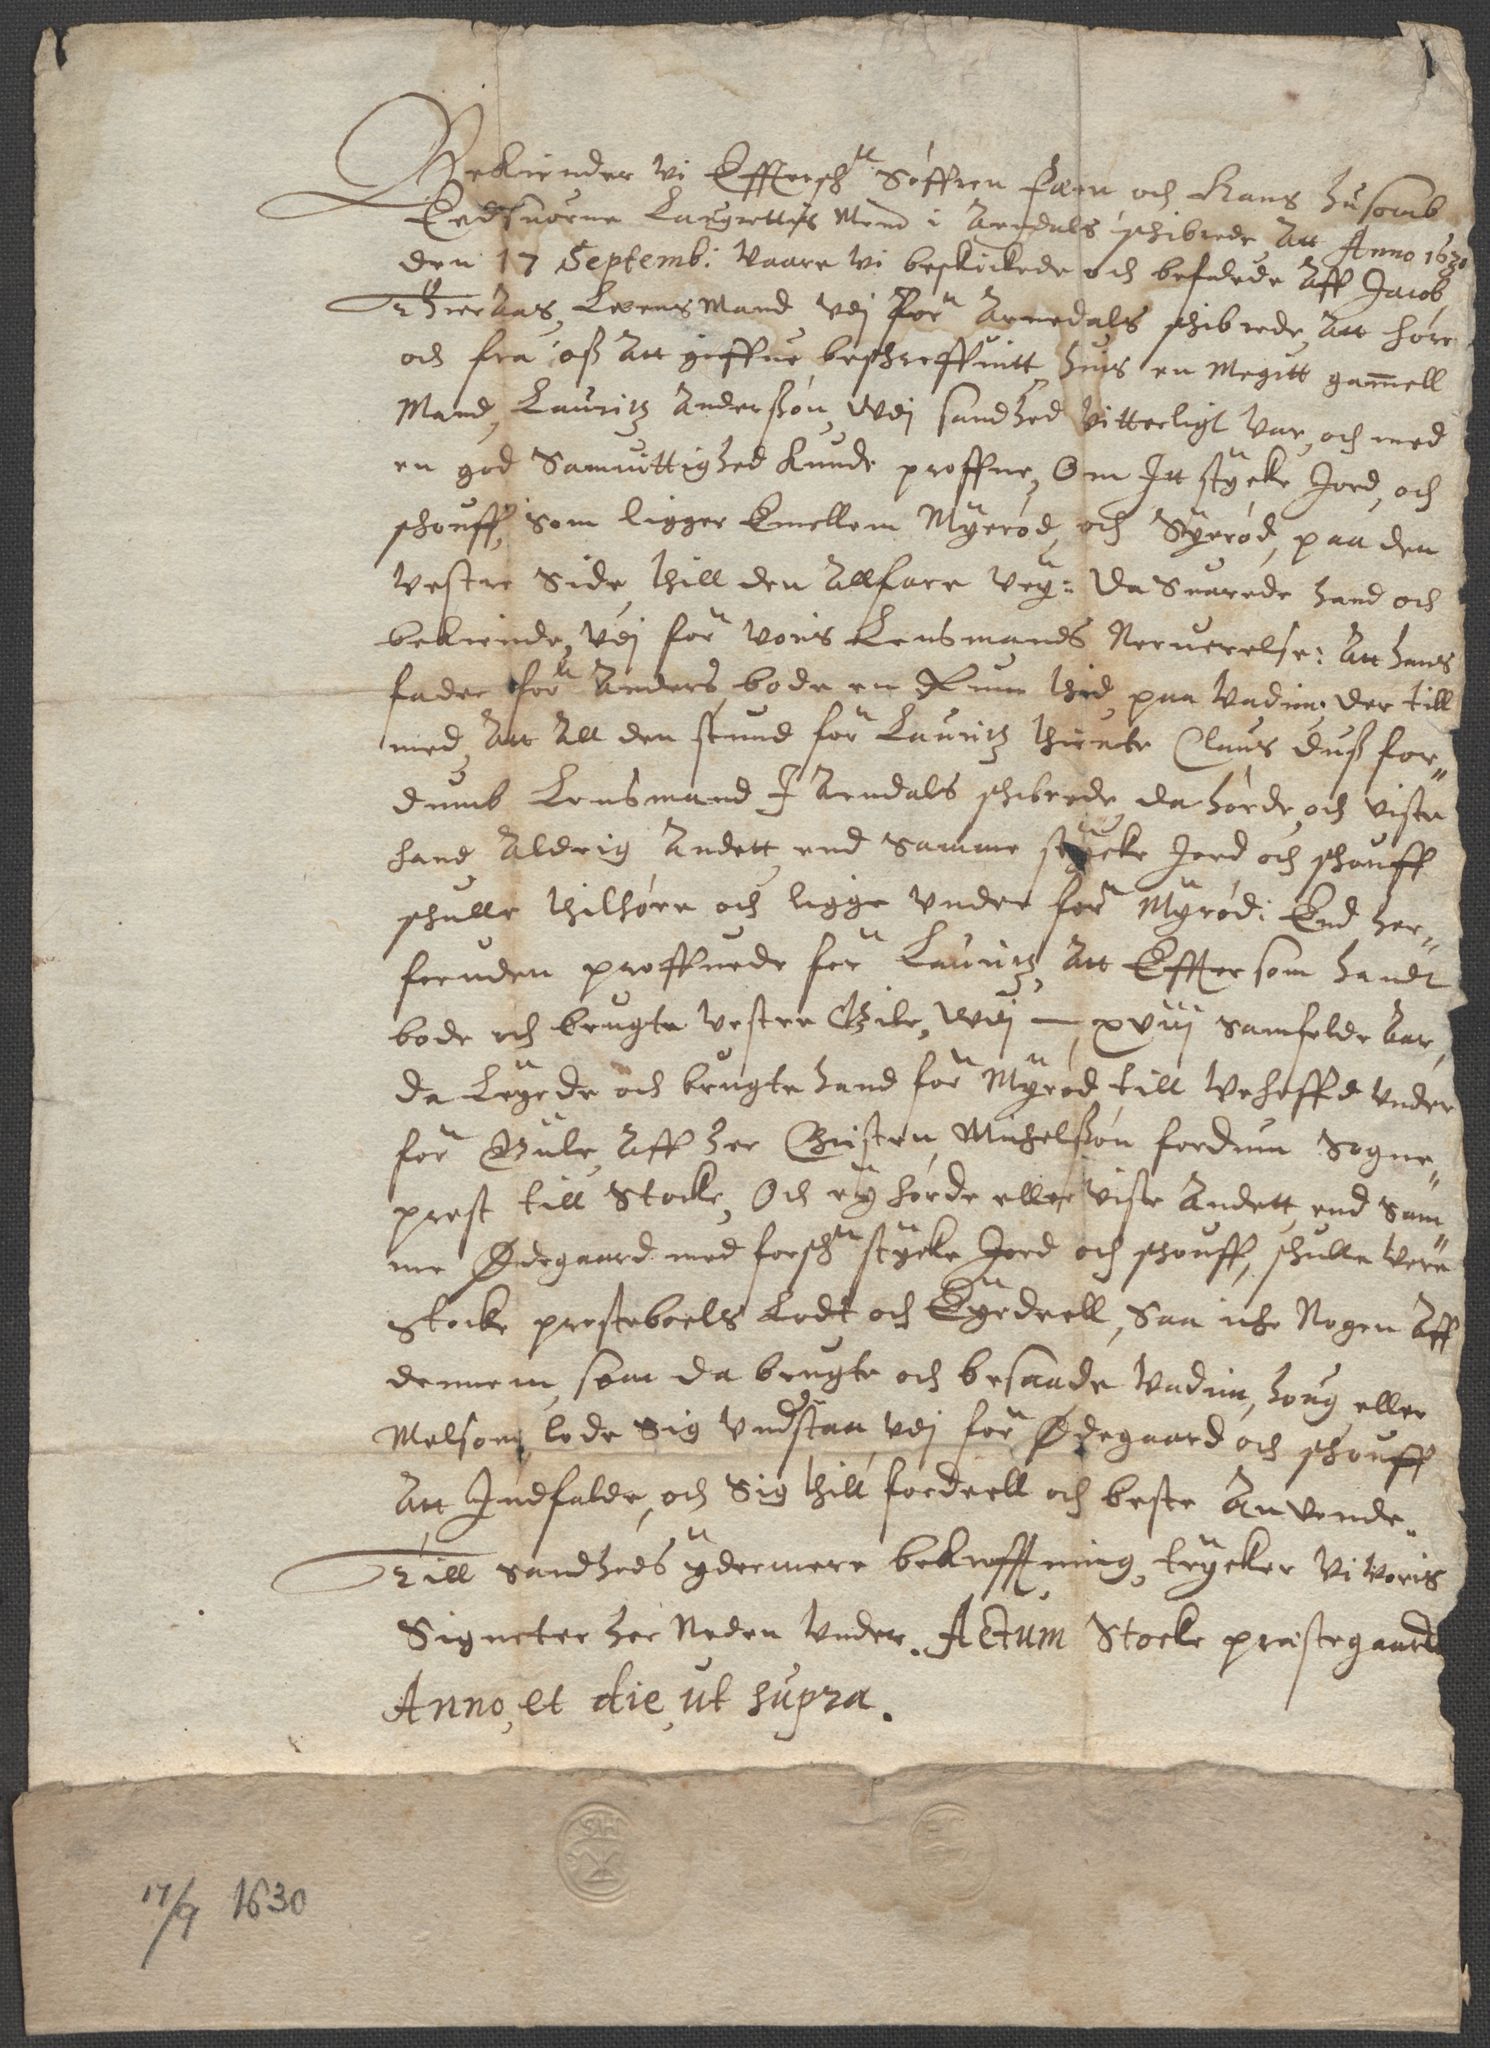 Bekiender Vi Effterschne Søffren Fæen och Hans Husomb
Eedsuorne Laugrettis Mend i Arndals schibrede Att Anno 1630
den 17 Septemb: Vaare Vi beskickede och befalede Aff Jacob
Lensmand Vdj forn Arnedals schibrede Att høre
och fra oß Att giffue beschreffuitt, huis en Megitt gamell
Mand, Lauritz Anderßøn, Vdj sandhed Vitterligt Var, och med
en god Samuittighed Kunde proffue, Om Itt stycke Jord, och
schouff, Som ligger Emellem Myerød, och Syerød, paa den
Vestre Side, thill den Allfare Vey: Da Suarede hand och
bekiende, Vdj forn Voris Lensmands Neruerelse: Att hans
fader forn Anders, bode en Rum thid, paa Vadum; der till
med, Att All den stund forn Lauritz thiente Claus Duß for„
dumb Lensmand I Arndals schibrede, da hørde, och viste
hand Aldrig Andett, end Samme stycke Jord och schouff
schulle thilhøre och ligge Vnder forn Myrød: End her„
foruden proffuede forn Lauritz, Att Efftersom handt
bode och brugte Vestre Vdj — xviij Samfelde Aar,
da Leyede och brugte hand forn Myrød, till Vnder
forn Aff her Christen Michelßøn fordum Sogne„
prest till Stocke, Och ey hørde eller viste Andett, end Sam„
me Ødegaard med forschne stycke Jord och schouff, schulle Vere
Stocke presteboels Lodt och Eyedeell, Saa iche Nogen Aff
dennem, som da brugte och besaade Vadum, houg eller
Melsom, lode Sig Vndstaa, Vdj forn Ødegaard och schouff
Att Indfalde, och Sig thill fordeell och beste Anvende.
Till Sandheds ydermere bekrefftning, trycker Vi Voris
Signeter her Neden Vnder. Actum Stocke præstegaard
Anno, et die, ut supra.
SH
17/9 1630